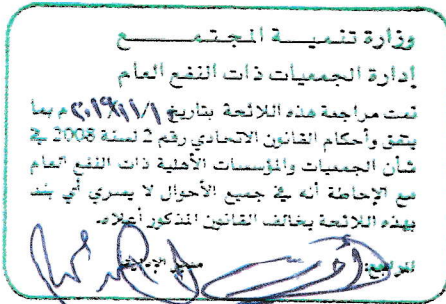 وزارة تنميـــة المجتمـــــع
إدارة الجمعيات ذات النفع العام
تمت مراجعة هذه اللائحة بتاريخ م بما
يتفق وأحكام القانون الاتحادي رقم 2 لسنة 2008 في
شأن الجمعيات والمؤسسات الأهلية ذات النفع العام
مع الإحاطة أنه في جميع الأحوال لا يسري أي بند
بهذه اللائحة يخالف القانون المذكور أعلاه.
المراجع: